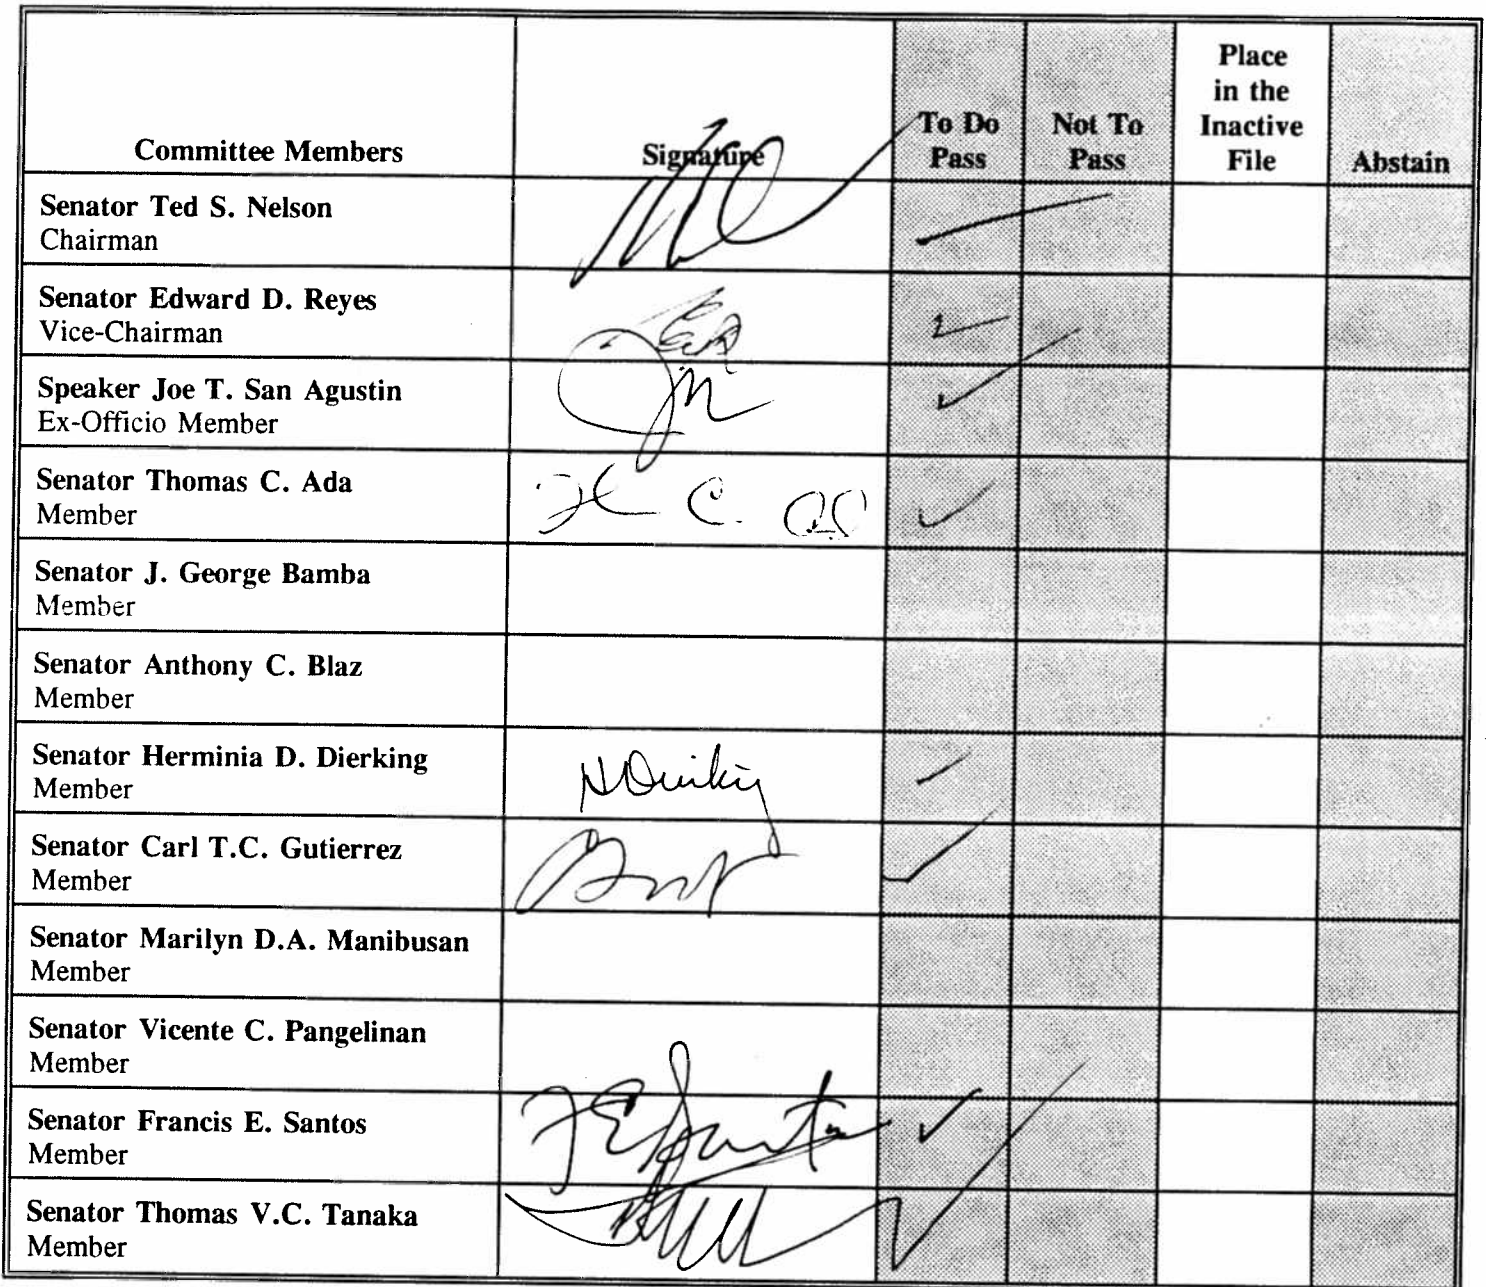 Committee Members
Signature
To Do
Pass
Not To
Pass
Place
in the
Inactive
File
Abstain
Senator Ted S. Nelson
Chairman
Senator Edward D. Reyes
Vice-Chairman
Speaker Joe T. San Agustin
Ex-Officio Member
Senator Thomas C. Ada
Member
Senator J. George Bamba
Member
Senator Anthony C. Blaz
Member
Senator Herminia D. Dierking
Member
Senator Carl T.C. Gutierrez
Member
Senator Marilyn D.A. Manibusan
Member
Senator Vicente C. Pangelinan
Member
Senator Francis E. Santos
Member
Senator Thomas V.C. Tanaka
Member